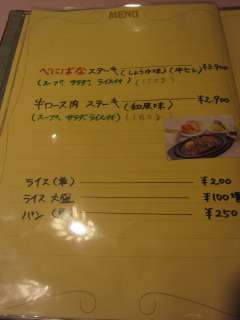 MENU
べにばなステーキ(しょうゆ味) ¥2,900
(スープ、サラダ、ライス付)
牛ロース肉 ステーキ (和風味) ¥2,900
(スープ、サラダ、ライス付)
ライス ¥200
ライス大盛 ¥100増
パン ¥250